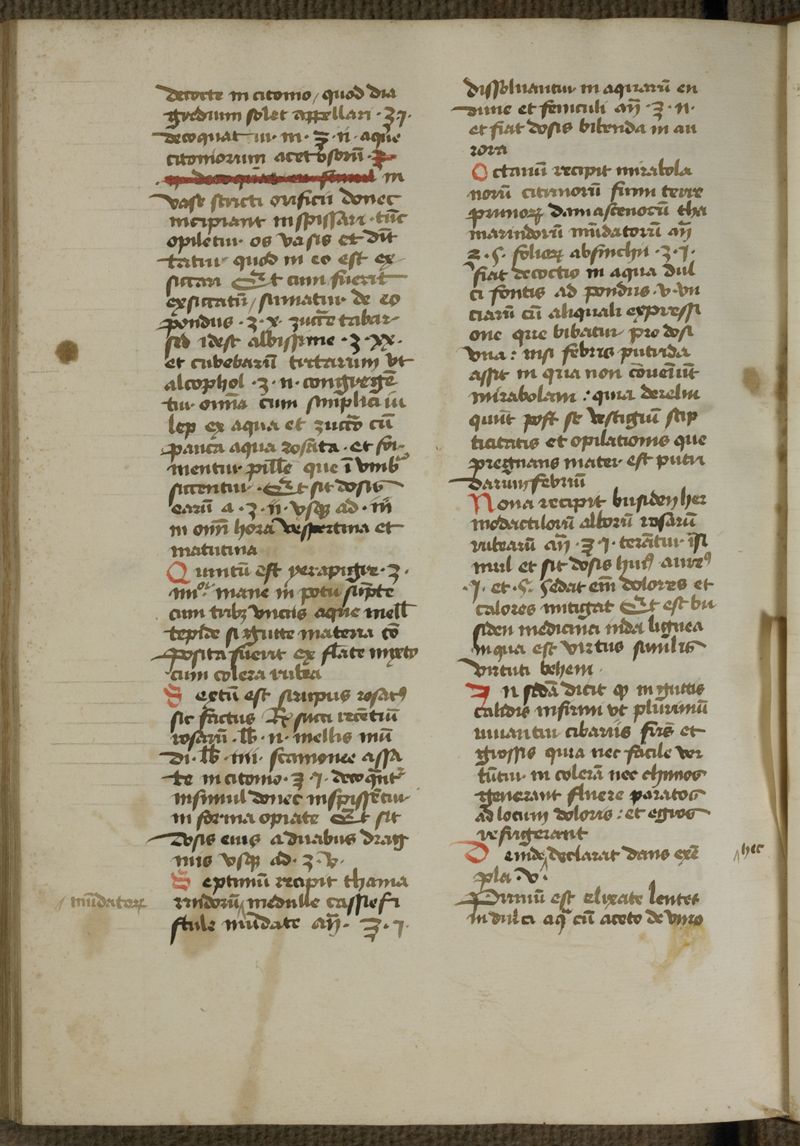 decocte in citonio / quod dia
gredium solet appellari · ʒ ⁊ ·
decoquatur · in · ℥ · ii · aque
citoniorum acetosorū
in
vase stricti orificii donec
incipiant inspissari · tūc
opiletur os vasis et
quod in eo est ex
siccari Et cum fuerit
exsiccatū / sumatur de eo
pondus · ʒ · x · zuccre tabar
sed idest albissime · ʒ · xx ·
et cubebarū tritarum vt
alcophol · ʒ · ii · congregē
tur omīa cum simplici iu
lep ex aqua et zuccro cū
pauca aqua rosata · et for
mentur pille que ī vmbᵃ
siccentur · Et sit dosis
earū a · ʒ · ii · vsqꝫ ad · iii
in omī hora vespertina et
matutina
Quintū est yerapigre · ʒ ·
iiiiᵒʳ mane in potu sūpte
cum tribꝫ vnciis aque mell
tepide si gutte materia cō
posita fuerit ex flate mixto
cum colera rubea
Sextū est sirupus rosatꝰ
sic factus ℞ succi recentiū
rosarū · lb · ii · mellis mū
di · lb · iiii · scamonee assa
te in citonio · ʒ · ⁊ · decoqntʳ
insimul donec inspissētur
in forma opiate Et sit
dosis eius a duabus drag
mis vsqꝫ ad · ʒ · v ·
Septimū recipit thama
rindorū medulle cassiefi
stule mūdate añ · ℥ · ⁊
mūdatorꝝ
dissoluantur in aquarū en
diuie et feniculi añ · ℥ · ii ·
et fiat dosis bibenda in au
rora
Octauū recipit mirabola
norū citrinorū fumi terre
prunorꝝ damascenorū tha
marindorū mūdatorū añ
foliorꝝ absinthii · ʒ · ⁊ ·
fiat decoctio in aqua dul
ci fontis ad pondus · v · vn
ciarū cū aliquali expressi
one que bibatur pro dosi
vna : nisi febris putrida
assit in qua non cōueniūt
mirabolani : quia derelin
quūt post se vestigiū stip
ticitatis et opilationis que
pregnans mater est putri
darum febriū
Nona recipit busiden her
modactilorū alborū rosarū
rubearū añ · ʒ ⁊ · terātur īsi
mul et sit dosis huiꝰ aureꝰ
· ⁊ · et · s · sedat em̄ dolores et
calores mitigat Et est bu
siden medicina inda lignea
in qua est virtus similis
virtuti behem ·
In sc̄da dicit ꝙ in guttis
calidis infirmi vt plurimū
vtuantur cibariis friīs et
grossis quia nec facile ver
tūtur in colerā nec chimos
generant fluere paratos
ad locum doloris : et egros
refrigerant
Deinde declarat dans exē
hec
pla · v ·
Primū est elixate lentes
in dulci aq̄ cū aceto de vino